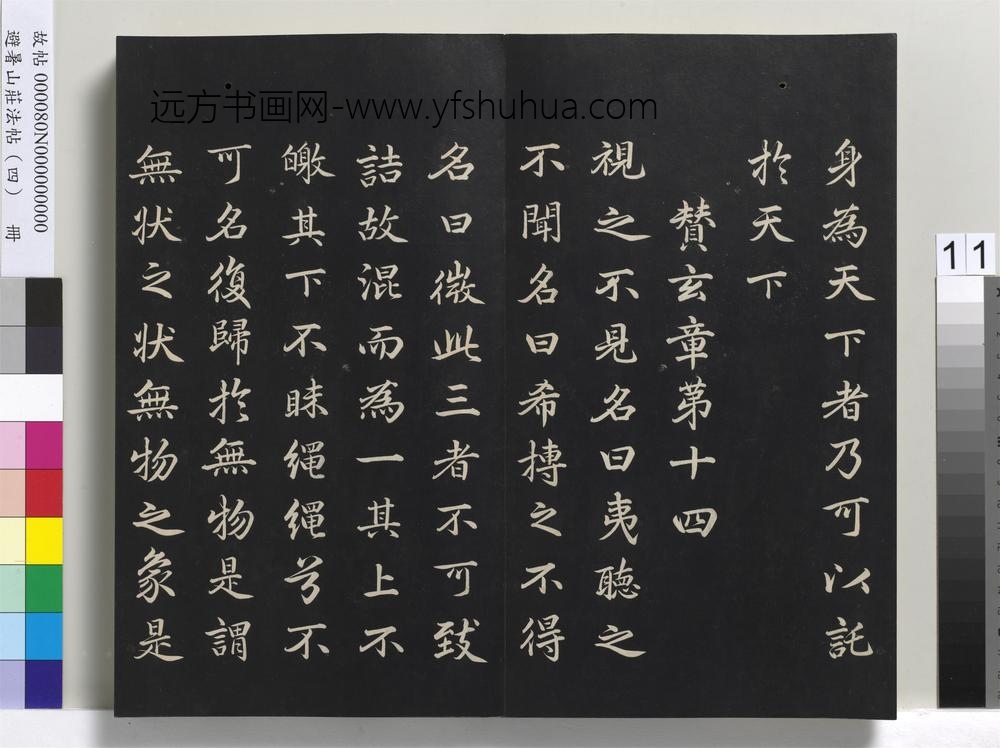 身為天下者乃可以託
於天下
贊玄章第十四
視之不見名曰夷聽之
不聞名曰希搏之不得
名曰微此三者不可致
詰故混而為一其上不
皦其下不昧繩繩兮不
可名復歸於無物是謂
無狀之狀無物之象是
远方书画网-www.yfshuhua.com
故帖 000080N000000000
避暑山莊法帖（四） 冊
11